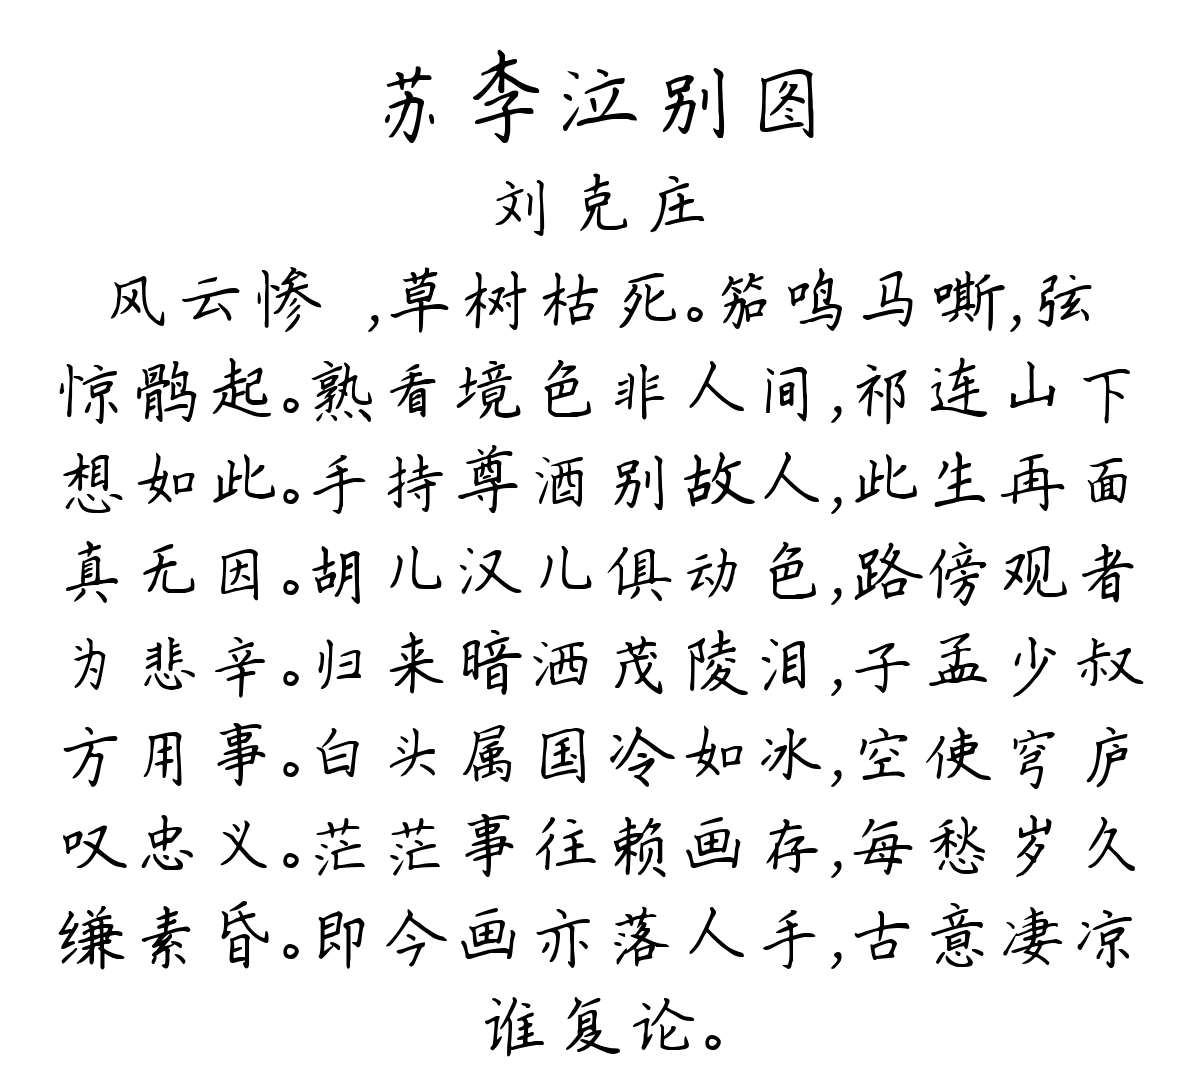 苏李泣别图
刘克庄
风云惨 ,草树枯死。笳鸣马嘶,弦
惊鹘起。熟看境色非人间,祁连山下
想如此。手持尊酒别故人,此生再面
真无因。胡儿汉儿俱动色,路傍观者
为悲辛。归来暗洒茂陵泪,子孟少叔
方用事。白头属国冷如冰,空使穹庐
叹忠义。茫茫事往赖画存,每愁岁久
缣素昏。即今画亦落人手,古意凄凉
谁复论。